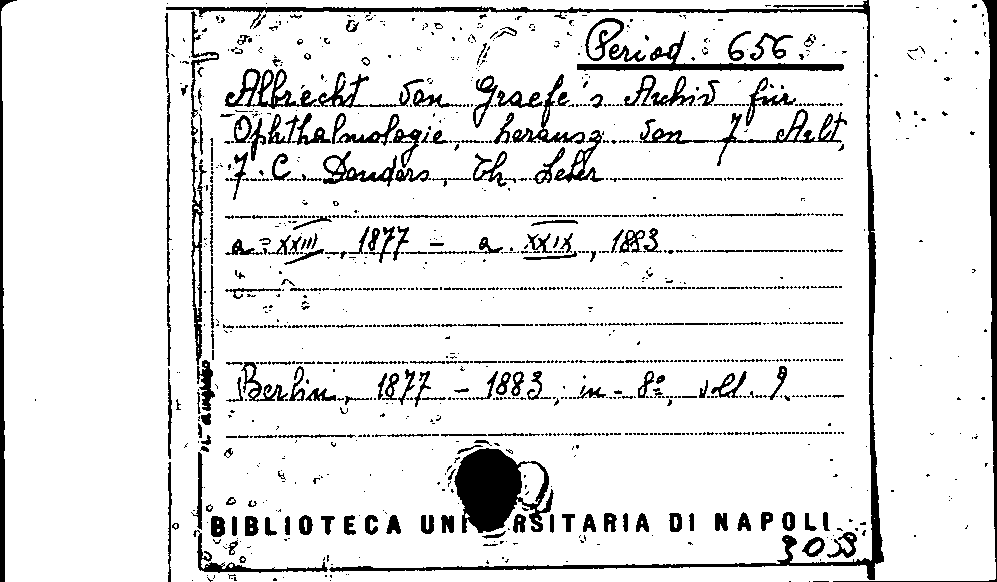 Period. 656.
Albrecht von Graefe's Archiv für
Ophthalmologie, herausg. von F. Arlt,
F. C. Donders, Th. Leber.
a. XXIII, 1877 - a. XXIX, 1883.
Berlin, 1877 - 1883, in-8º, voll. 9.
BIBLIOTECA UNI RSITARIA DI NAPOLI